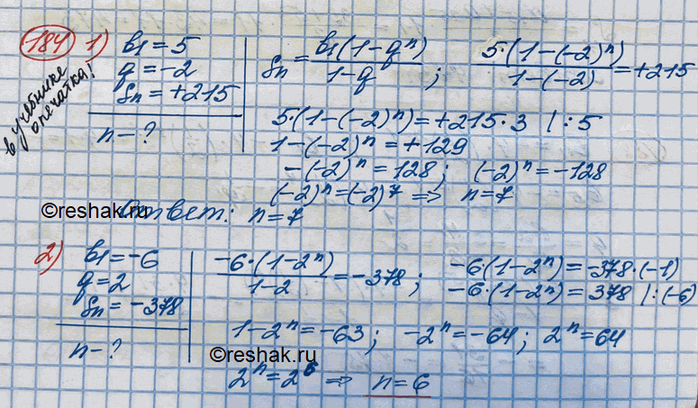 184 1) b₁ = 5
q = -2
Sn = +215
n - ?
в учебнике опечатка!
Sn = b₁(1-qⁿ)/1-q ; 5·(1-(-2)ⁿ)/1-(-2) = +215
5·(1-(-2)ⁿ) = +215·3 | :5
1-(-2)ⁿ = +129
-(-2)ⁿ = 128; (-2)ⁿ = -128
(-2)ⁿ = (-2)⁷ ⇒ n = 7
©reshak.ru
Ответ: n = 7
2) b₁ = -6
q = 2
Sn = -378
n - ?
-6·(1-2ⁿ)/1-2 = -378 ; -6(1-2ⁿ) = -378·(-1)
-6·(1-2ⁿ) = 378 | :(-6)
1-2ⁿ = -63; -2ⁿ = -64; 2ⁿ = 64
©reshak.ru
2ⁿ = 2⁶ ⇒ n = 6